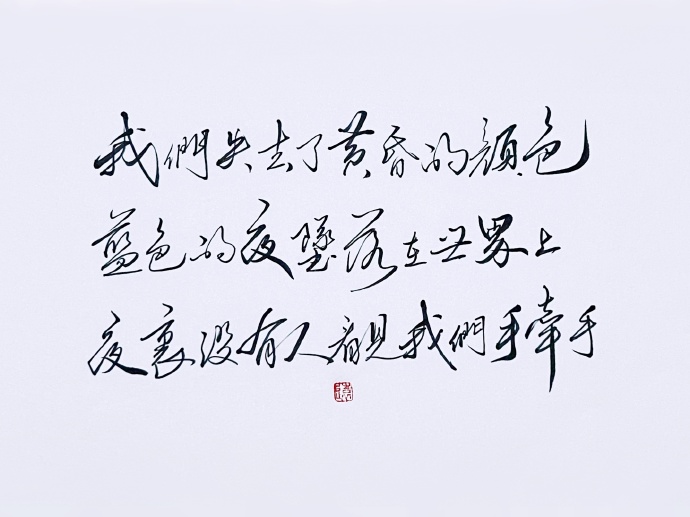 我們失去了黃昏的顏色
藍色的夜墜落在世界上
夜裏沒有人看見我們手牽手